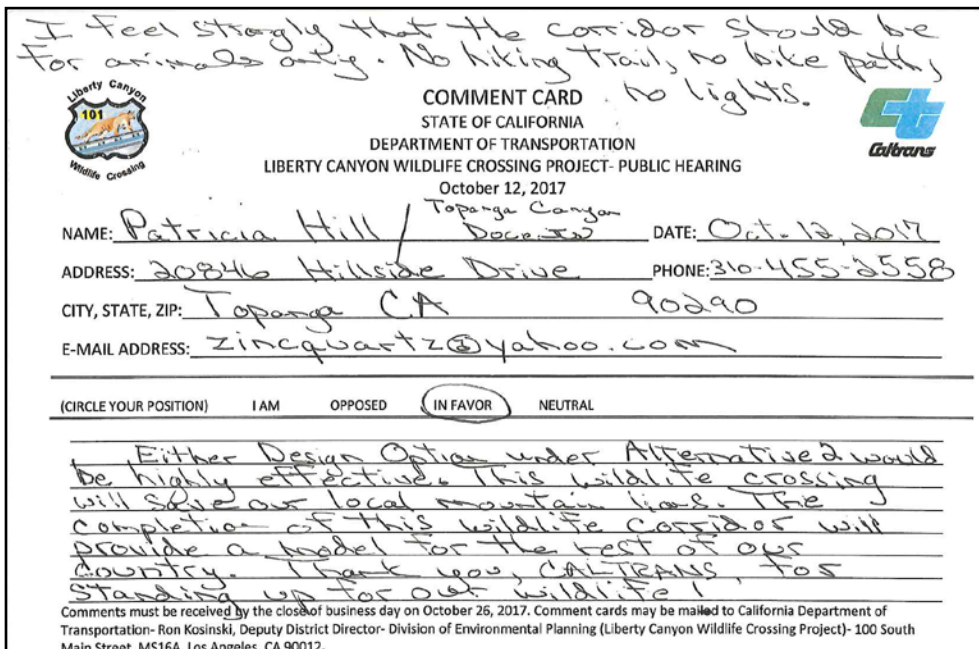 I feel strongly that the corridor should be
for animals only. No hiking trail, no bike path,
no lights.
Liberty Canyon
101
Wildlife Crossing
COMMENT CARD
STATE OF CALIFORNIA
DEPARTMENT OF TRANSPORTATION
LIBERTY CANYON WILDLIFE CROSSING PROJECT- PUBLIC HEARING
October 12, 2017
Caltrans
NAME: Patricia Hill / Topanga Canyon Docents DATE: Oct. 12, 2017
ADDRESS: 20846 Hillside Drive PHONE: 310-455-2558
CITY, STATE, ZIP: Topanga CA 90290
E-MAIL ADDRESS: zincquartz@yahoo.com
(CIRCLE YOUR POSITION) I AM OPPOSED IN FAVOR NEUTRAL
Either Design Option under Alternative 2 would
be highly effective. This wildlife crossing
will save our local mountain lions. The
completion of this wildlife corridor will
provide a model for the rest of our
country. Thank you, CALTRANS, for
standing up for our wildlife!
Comments must be received by the close of business day on October 26, 2017. Comment cards may be mailed to California Department of
Transportation- Ron Kosinski, Deputy District Director- Division of Environmental Planning (Liberty Canyon Wildlife Crossing Project)- 100 South
Main Street, MS16A, Los Angeles, CA 90012.